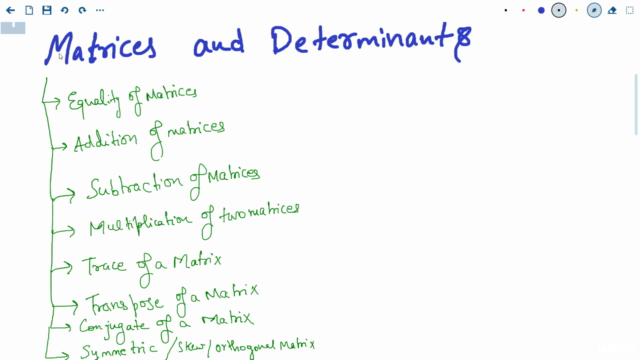 Matrices and Determinants
Equality of Matrices
Addition of matrices
Subtraction of Matrices
Multiplication of two matrices
Trace of a Matrix
Transpose of a Matrix
Conjugate of a Matrix
Symmetric /skew/orthogonal Matrix